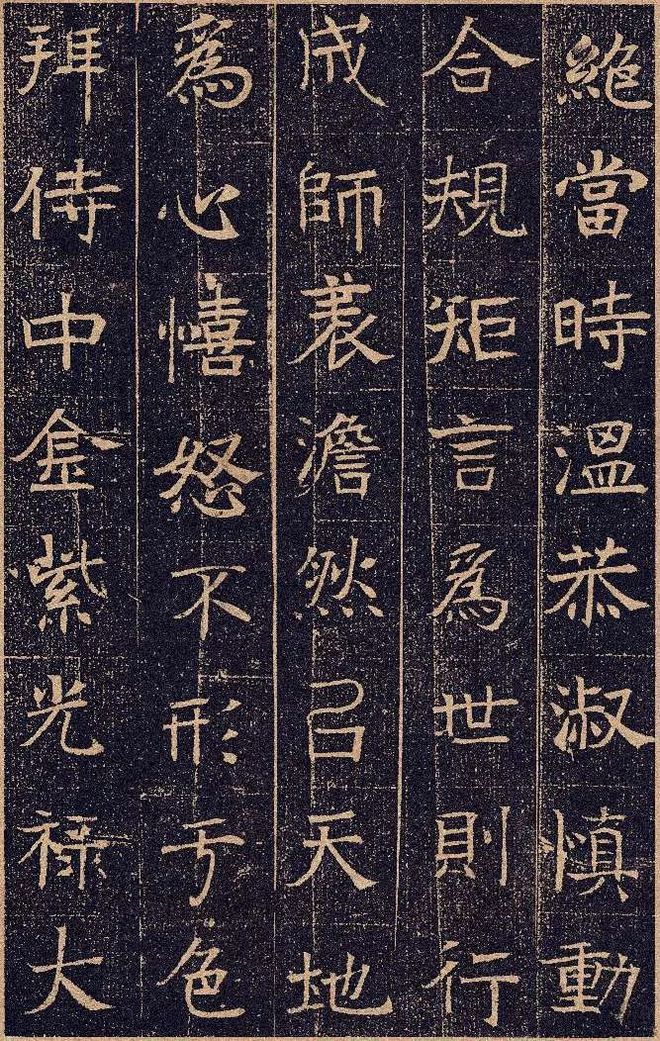 絶當時溫恭淑慎動
合規矩言爲世則行
成師表澹然㠯天地
爲心憘怒不形于色
拜侍中金紫光禄大